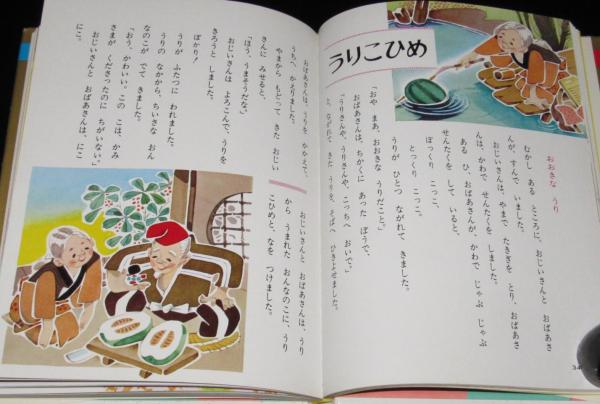 うりこひめ
おおきな うり
むかし ある ところに、おじいさんと おばあさ
んが、すんで いました。
おじいさんは、やまで たきぎを とり、おばあさ
んは、かわで せんたくを しました。
ある ひ、おばあさんが、かわで じゃぶ じゃぶ
せんたくを して いると、
ぽっくり こっこ、
とっくり こっこ。
うりが ひとつ ながれて きました。
「おや まあ、おおきな うりだこと。」
おばあさんは、ちかくに あった ぼうで、
「うりさんや、うりさんや、こっちへ おいで。」
と、ながれて きた うりを、そばへ ひきよせました。
34
おばあさんは、うりを かかえて、
うちへ かえりました。
やまから もどって きた おじい
さんに みせると、
「ほう、うまそうだな。」
おじいさんは よろこんで、うりを
きろうと しました。
ぽかり!
うりが ふたつに われました。
うりの なかから、ちいさな おん
なのこが でて きました。
「おう、かわいい。この こは、かみ
さまが くださったのに ちがいない。」
おじいさんと おばあさんは、にこ
にこ。
おじいさんと おばあさんは、うり
から うまれた おんなのこに、うり
こひめと、なを つけました。